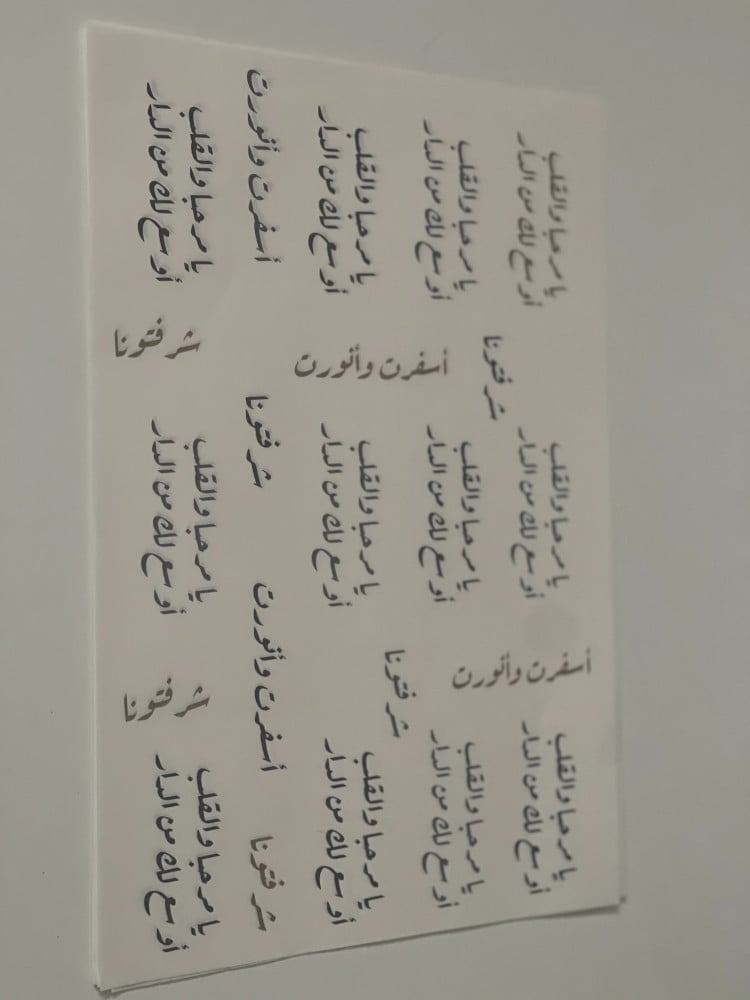 يا مرحبا والقلب
أوسع لك من الدار
يا مرحبا والقلب
أوسع لك من الدار
يا مرحبا والقلب
أوسع لك من الدار
أسفرت وأنورت
شرفتونا
يا مرحبا والقلب
أوسع لك من الدار
يا مرحبا والقلب
أوسع لك من الدار
يا مرحبا والقلب
أوسع لك من الدار
شرفتونا
أسفرت وأنورت
يا مرحبا والقلب
أوسع لك من الدار
يا مرحبا والقلب
أوسع لك من الدار
يا مرحبا والقلب
أوسع لك من الدار
شرفتونا
أسفرت وأنورت
شرفتونا
أسفرت وأنورت
يا مرحبا والقلب
أوسع لك من الدار
شرفتونا
يا مرحبا والقلب
أوسع لك من الدار
شرفتونا
يا مرحبا والقلب
أوسع لك من الدار